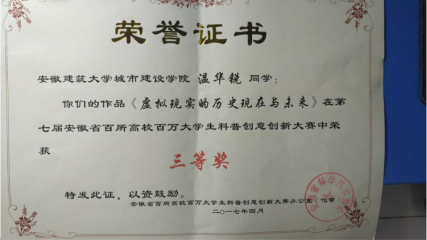 荣誉证书
安徽建筑大学城市建设学院 温华锐 同学:
你们的作品《虚拟现实的历史现在与未来》在第
七届安徽省百所高校百万大学生科普创意创新大赛中荣
获
三等奖
特发此证,以资鼓励。
安徽省百所高校百万大学生科普创意创新大赛办公室
二〇一七年四月